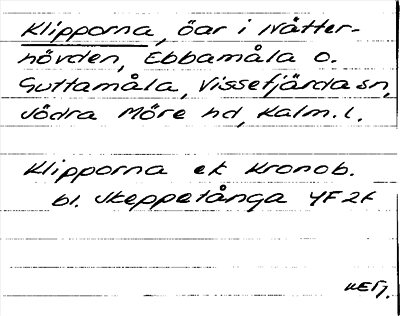 Klipporna, öar i Nåtter-
hövden, Ebbamåla o.
Guttamåla, Vissefjärda sn,
Södra Möre hd, Kalm. l.
Klipporna ek Kronob.
bl. Skeppetånga 4F2f